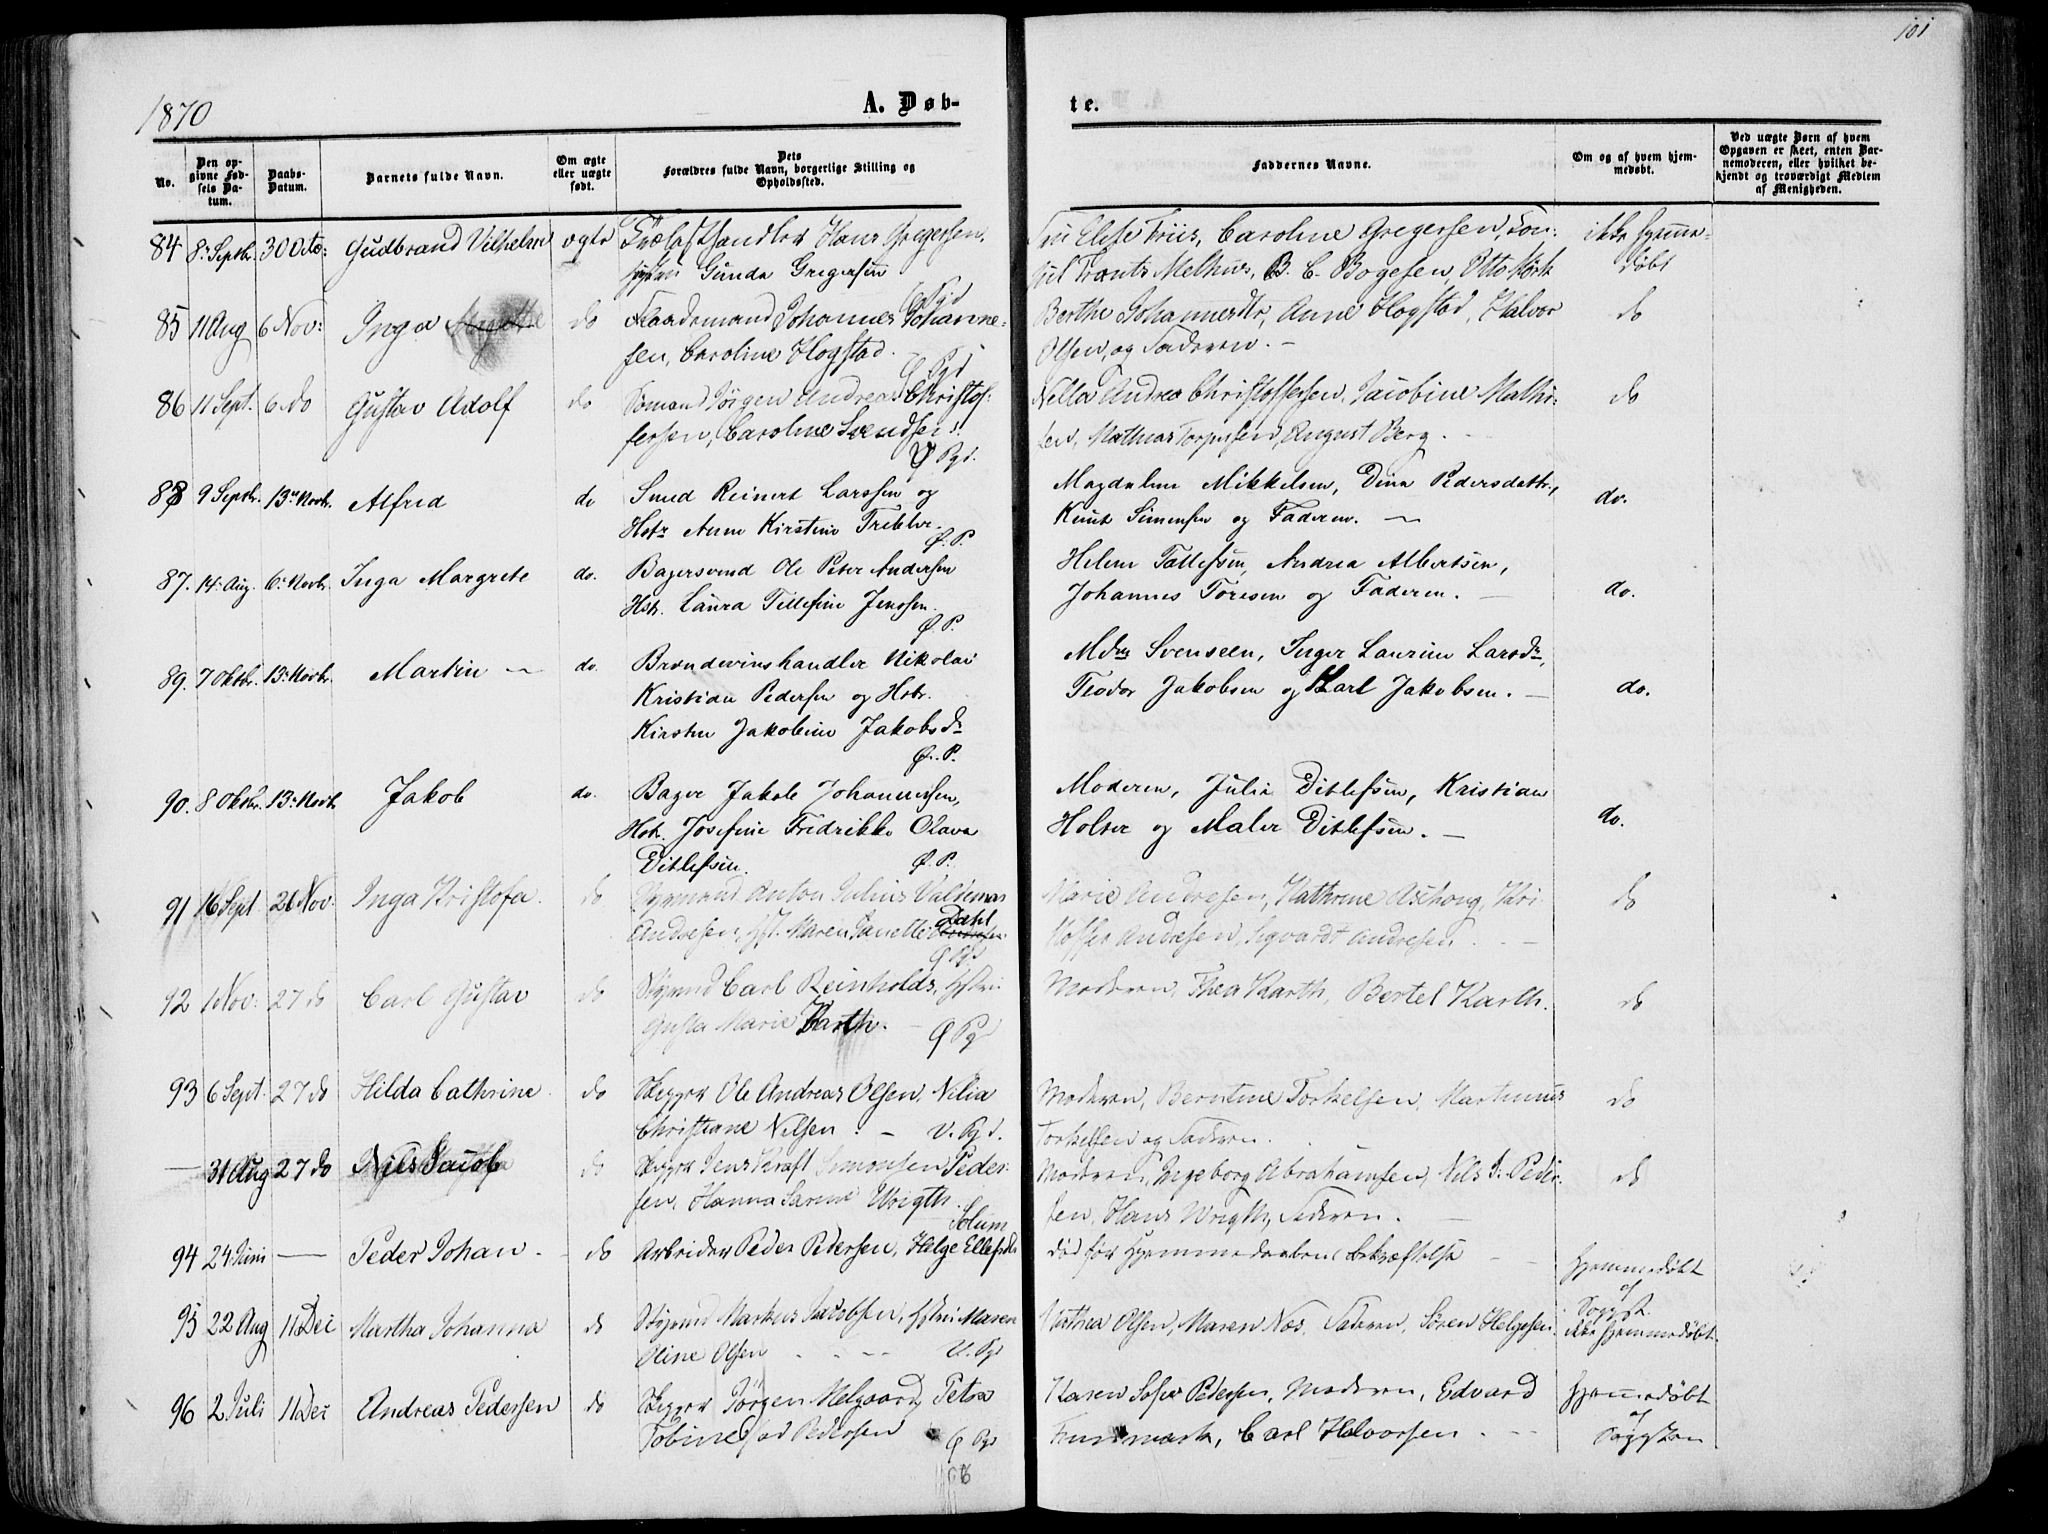 101
1870
A. Døb-
te.
No.
Den op-
givne Fød-
sels Da-
tum.
Daabs-
Datum.
Barnets fulde Navn.
Om ægte
eller uægte
født.
Dets
Forældres fulde Navn, borgerlige Stilling og
Opholdssted.
Faddernes Navne.
Om og af hvem hjem-
medøbt.
Ved uægte Børn af hvem
Opgaven er skeet, enten Bar-
nemoderen, eller hvilket be-
kjendt og troværdigt Medlem
af Menigheden.
84 8 Septbr. 30 Octo: Gudbrand Vilhelm ægte Hans Gregersen,
Gunda Gregersen
Elise Friis, Caroline Gregersen,
Melhus, B. C. Bogesen, Otto
ikke hjemme-
døbt
85 11 Aug 6 Nov: Inga do Johannes Johanne-
sen, Caroline Hogstad.
Ø Pgd
Berthe Johannesdtr, Anne Hogstad, Halvor
Olsen, og Faderen. -
do
86 11 Sept. 6 do Gustav Adolf do Sømand Jörgen Andreas Christof-
fersen, Caroline Svendsen.
Ø Pgd
Andrea Christoffersen, Jacobine Mathi-
sen, Mathias Torgersen, August Berg.
do
88 9 Septbr. 13 Novbr. Alfred do Smed Reinert Larssen og
Hstr Anne Kirstine Trebler.
Ø. P.
Magdalene Mikkelsen, Dina Pedersdattr.,
Knut Simensen og Faderen.
do.
87. 14. Aug. 6. Novbr. Inga Margrete do. Bagersvend Ole Peter Andersen
Hstr. Laura Tellefine Jenssen.
Ø. P.
Helene Tollefsen, Andrea Albertsen,
Johannes Toresen og Faderen. -
do.
89. 7 Oktbr. 13. Novbr. Martin - do. Brændevinshandler Nikolai
Kristian Pedersen og Hstr.
Kirsten Jakobine Jakobsdr
Ø. P.
Svensen, Inger Laurine Larsdr,
Teodor Jakobsen og Karl Jakobsen. -
do.
90. 8 Oktbr. 13. Novbr. Jakob do. Bager Jakob Johannessen,
Hstr. Josefine Fredrikke Olava
Ditlefsen.
Ø. P.
Moderen, Julie Ditlefsen, Kristian
Holter og Maler Ditlefsen. -
do.
91 16 Sept 20 Nov. Inga Kristofa. do Styrmand Anton Julius Valdemar
Andresen, Maren Janette Dahl
Ø Pgd
Marie Andresen, Kathrine Aschoug, Kri-
stoffer Andresen, Sigvardt Andresen. -
do
92 1 Nov. 27 do Carl Gustav do Carl Reinholds,
Gusta Marie Karth.
Ø Pgd
Moderen, Thea Karth, Bertel Karth.
do
93 6 Sept. 27 do Hilda Cathrine. do Skipper Ole Andreas Olsen, Nilia
Christiane Nilsen. - V. Pgd.
Moderen, Berntine Torkelsen, Martinius
Torkelsen og Faderen.
do
- 31 Aug 27 do Nils Jacob do Skipper Jens Kraft Simonsen Peder-
sen, Hanna Sarine Wrigth.
Moderen, Ingeborg Abrahamsen, Nils J. Peder-
sen, Hans Wrigth, Faderen. -
do
94 24 Juni - Peder Johan - do Arbeider Peder Pedersen, Helge Ellefsdtr
Solum
død før Hjemmedaabens bekræftelse -
Hjemmedøbt
af
95 22 Aug 11 Dec Martha Johanna do Markus Jacobsen, Maren
Oline Olsen
V. Pgd
Olsen, Maren Næs, Faderen, Sören Helgesen.
ikke hjemmedøbt.
96 2 Juli 11 Dec Andreas Pedersen do Skipper Jörgen Melgaard, Petra
Tobine Pedersen
Ø Pgd
Karen Sofie Pedersen, Moderen, Edvard
Carl Halvorsen. -
hjemmedøbt
af